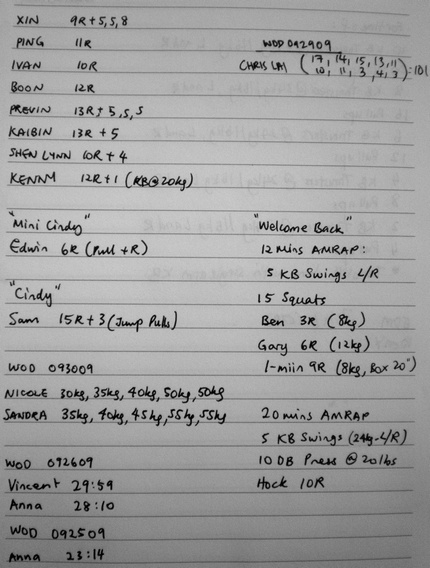 XIN 9R + 5, 5, 8
PING 11R
IVAN 10R
BOON 12R
PREVIN 13R + 5, 5, 5
KAIBIN 13R + 5
SHEN LYNN 10R + 4
KENNM 12R + 1 (KB@20kg)
WOD 092909
CHRIS LIM (17, 14, 15, 13, 11
10, 11, 3, 4, 3) = 101
"Mini Cindy"
Edwin 6R (Pull + R)
"Cindy"
Sam 15R + 3 (Jump Pulls)
WOD 093009
NICOLE 30kg, 35kg, 40kg, 50kg, 50kg
SANDRA 35kg, 40kg, 45kg, 55kg, 55kg
WOD 092609
Vincent 29:59
Anna 28:10
WOD 092509
Anna 23:14
"Welcome Back"
12 Mins AMRAP:
5 KB Swings L/R
15 Squats
Ben 3R (8kg)
Gary 6R (12kg)
1-miin 9R (8kg, Box 20")
20 mins AMRAP
5 KB Swings (24kg-L/R)
10 DB Press @ 20lbs
Hock 10R